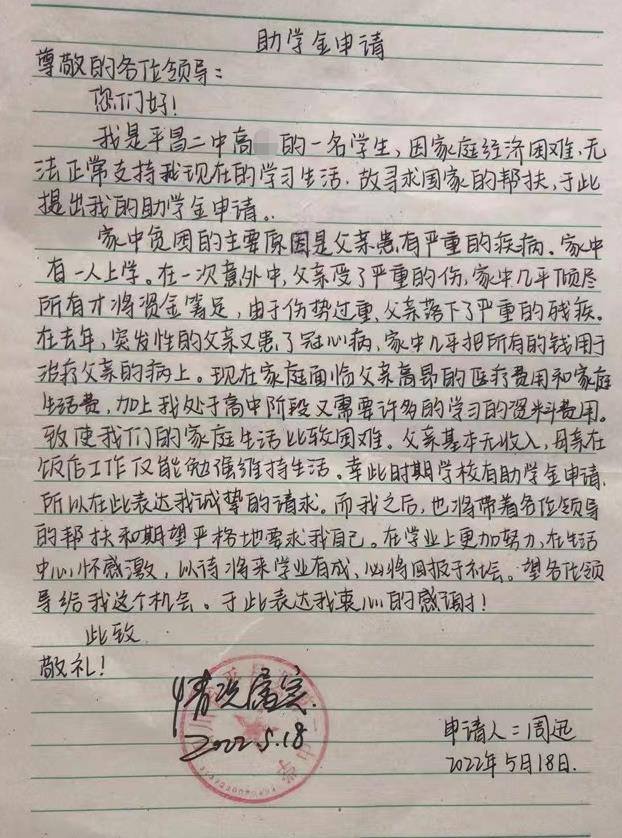 助学金申请
尊敬的各位领导：
您们好！
我是平昌二中高 的一名学生，因家庭经济困难，无
法正常支持我现在的学习生活，故寻求国家的帮扶，于此
提出我的助学金申请。
家中贫困的主要原因是父亲患有严重的疾病。家中
有一人上学。在一次意外中，父亲受了严重的伤，家中几乎倾尽
所有才将资金筹足，由于伤势过重，父亲落下了严重的残疾。
在去年，突发性的父亲又患了冠心病，家中几乎把所有的钱用于
治疗父亲的病上。现在家庭面临父亲高昂的医疗费用和家庭
生活费，加上我处于高中阶段又需要许多的学习的资料费用。
致使我们的家庭生活比较困难。父亲基本无收入，母亲在
饭店工作仅能勉强维持生活。幸此时期学校有助学金申请，
所以在此表达我诚挚的请求。而我之后，也将带着各位领导
的帮扶和期望严格地要求我自己。在学业上更加努力，在生活
中心怀感激，以待将来学业有成，必将回报于社会。望各位领
导给我这个机会。于此表达我衷心的感谢！
此致
敬礼！
情况属实
2022.5.18
申请人：周迅
2022年5月18日.